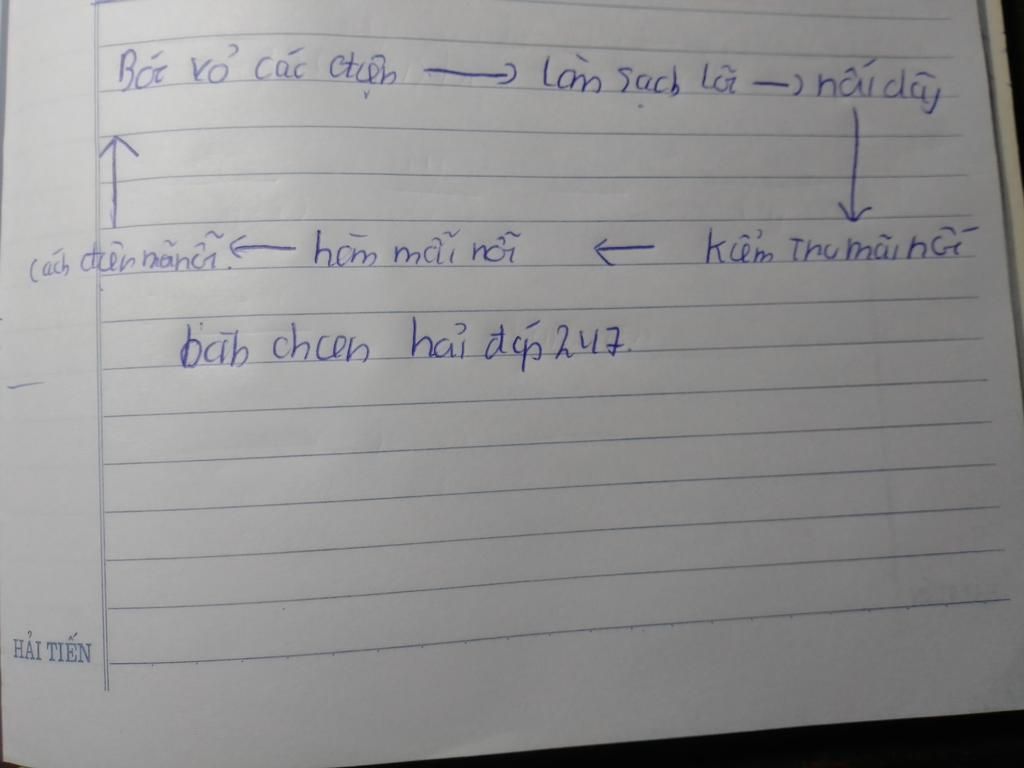 Bóc vỏ các điện → làm sạch lõi → nối dây
cách điện mãnối. ← hàn mỗi nối ← kiểm Tnu mãi nối
bạn chcen hải đáp 247.
HẢI TIẾN